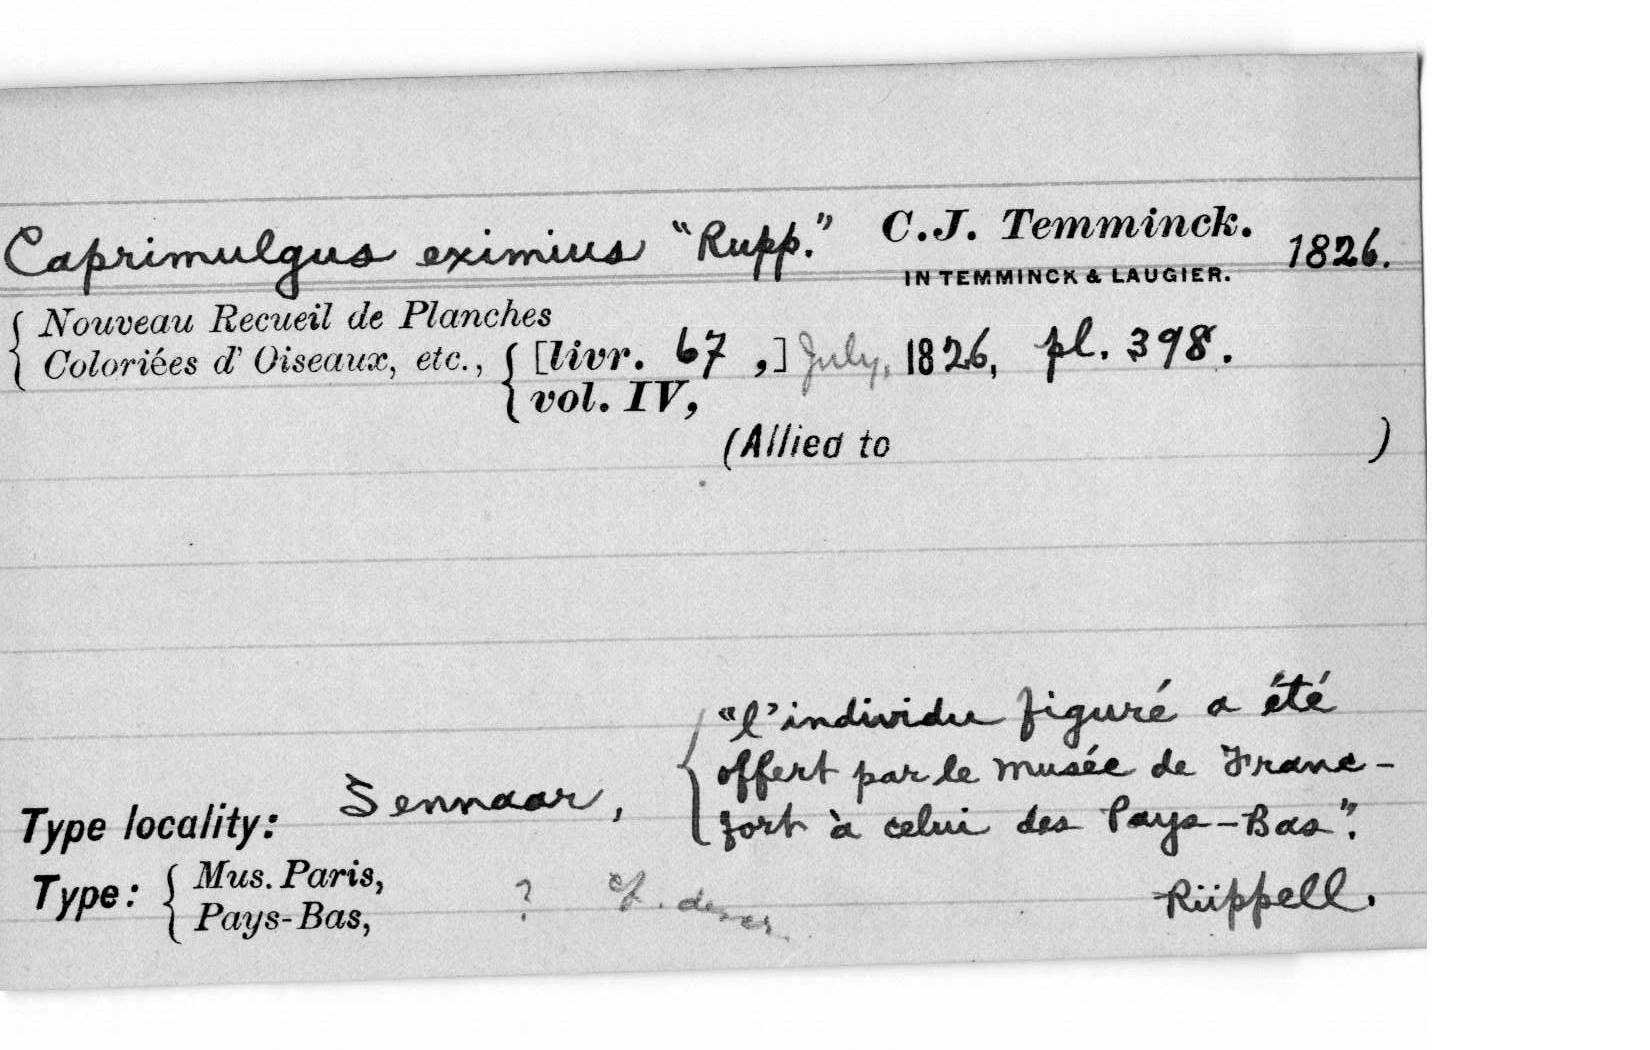 Caprimulgus eximius “Rupp.” C. J. Temminck. 1826.
IN TEMMINCK & LAUGIER.
{ Nouveau Recueil de Planches
Coloriées d' Oiseaux, etc., { [livr. 67 ,] July, 1826, pl. 398.
vol. IV,
(Allied to )
“l’individu figuré a été
offert par le musée de Franc-
Type locality: Sennaar, fort à celui des Pays-Bas”.
Type: { Mus. Paris,
Pays-Bas, ? cf. Rüppell.